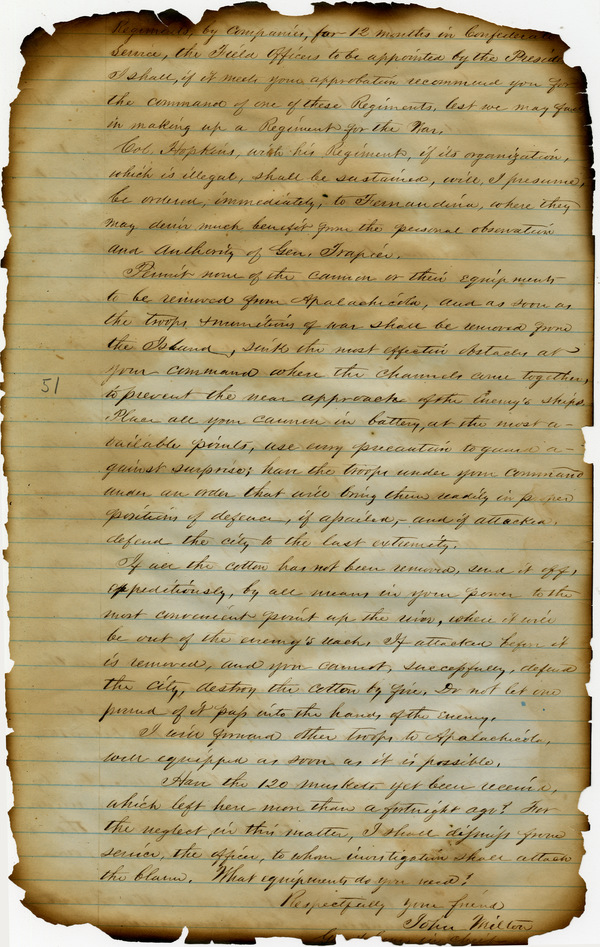 Regiments, by companies, for 12 months in Confederate
Service, the Field Officers to be appointed by the Preside
I shall, if it meets your approbation recommend you for
the command of one of these Regiments, lest we may fail
in making up a Regiment for the War.
Col. Hopkins, with his Regiment, if its organization,
which is illegal, shall be sustained, will, I presume,
be ordered, immediately, to Fernandina, where they
may derive much benefit from the personal observation
and Authority of Gen. Trapier.
Permit none of the cannon or their equipments
to be removed from Apalachicola, and as soon as
the troops & munitions of war shall be removed from
the Island, sink the most effective obstacles at
your command where the channels come together,
to prevent the near approach of the Enemy's ships.
51
Place all your cannon in battery, at the most a-
vailable points, use every precaution to guard a-
gainst surprise; have the troops under your command
under an order that will bring them readily in proper
positions of defence, if assailed,- and if attacked,
defend the city to the last extremity.
If all the cotton has not been removed, send it off,
expeditiously, by all means in your power to the
most convenient point up the river, where it will
be out of the enemy's reach. If attacked before it
is removed, and you cannot, successfully, defend
the city, destroy the cotton by fire. Do not let one
pound of it pass into the hands of the Enemy.
I will forward other troops to Apalachicola,
well equipped as soon as it is possible.
Have the 120 muskets yet been received,
which left here more than a fortnight ago? For
the neglect in this matter, I shall dismiss from
service, the officer, to whom investigation shall attach
the blame. What equipments do you need?
Respectfully your friend
John Milton